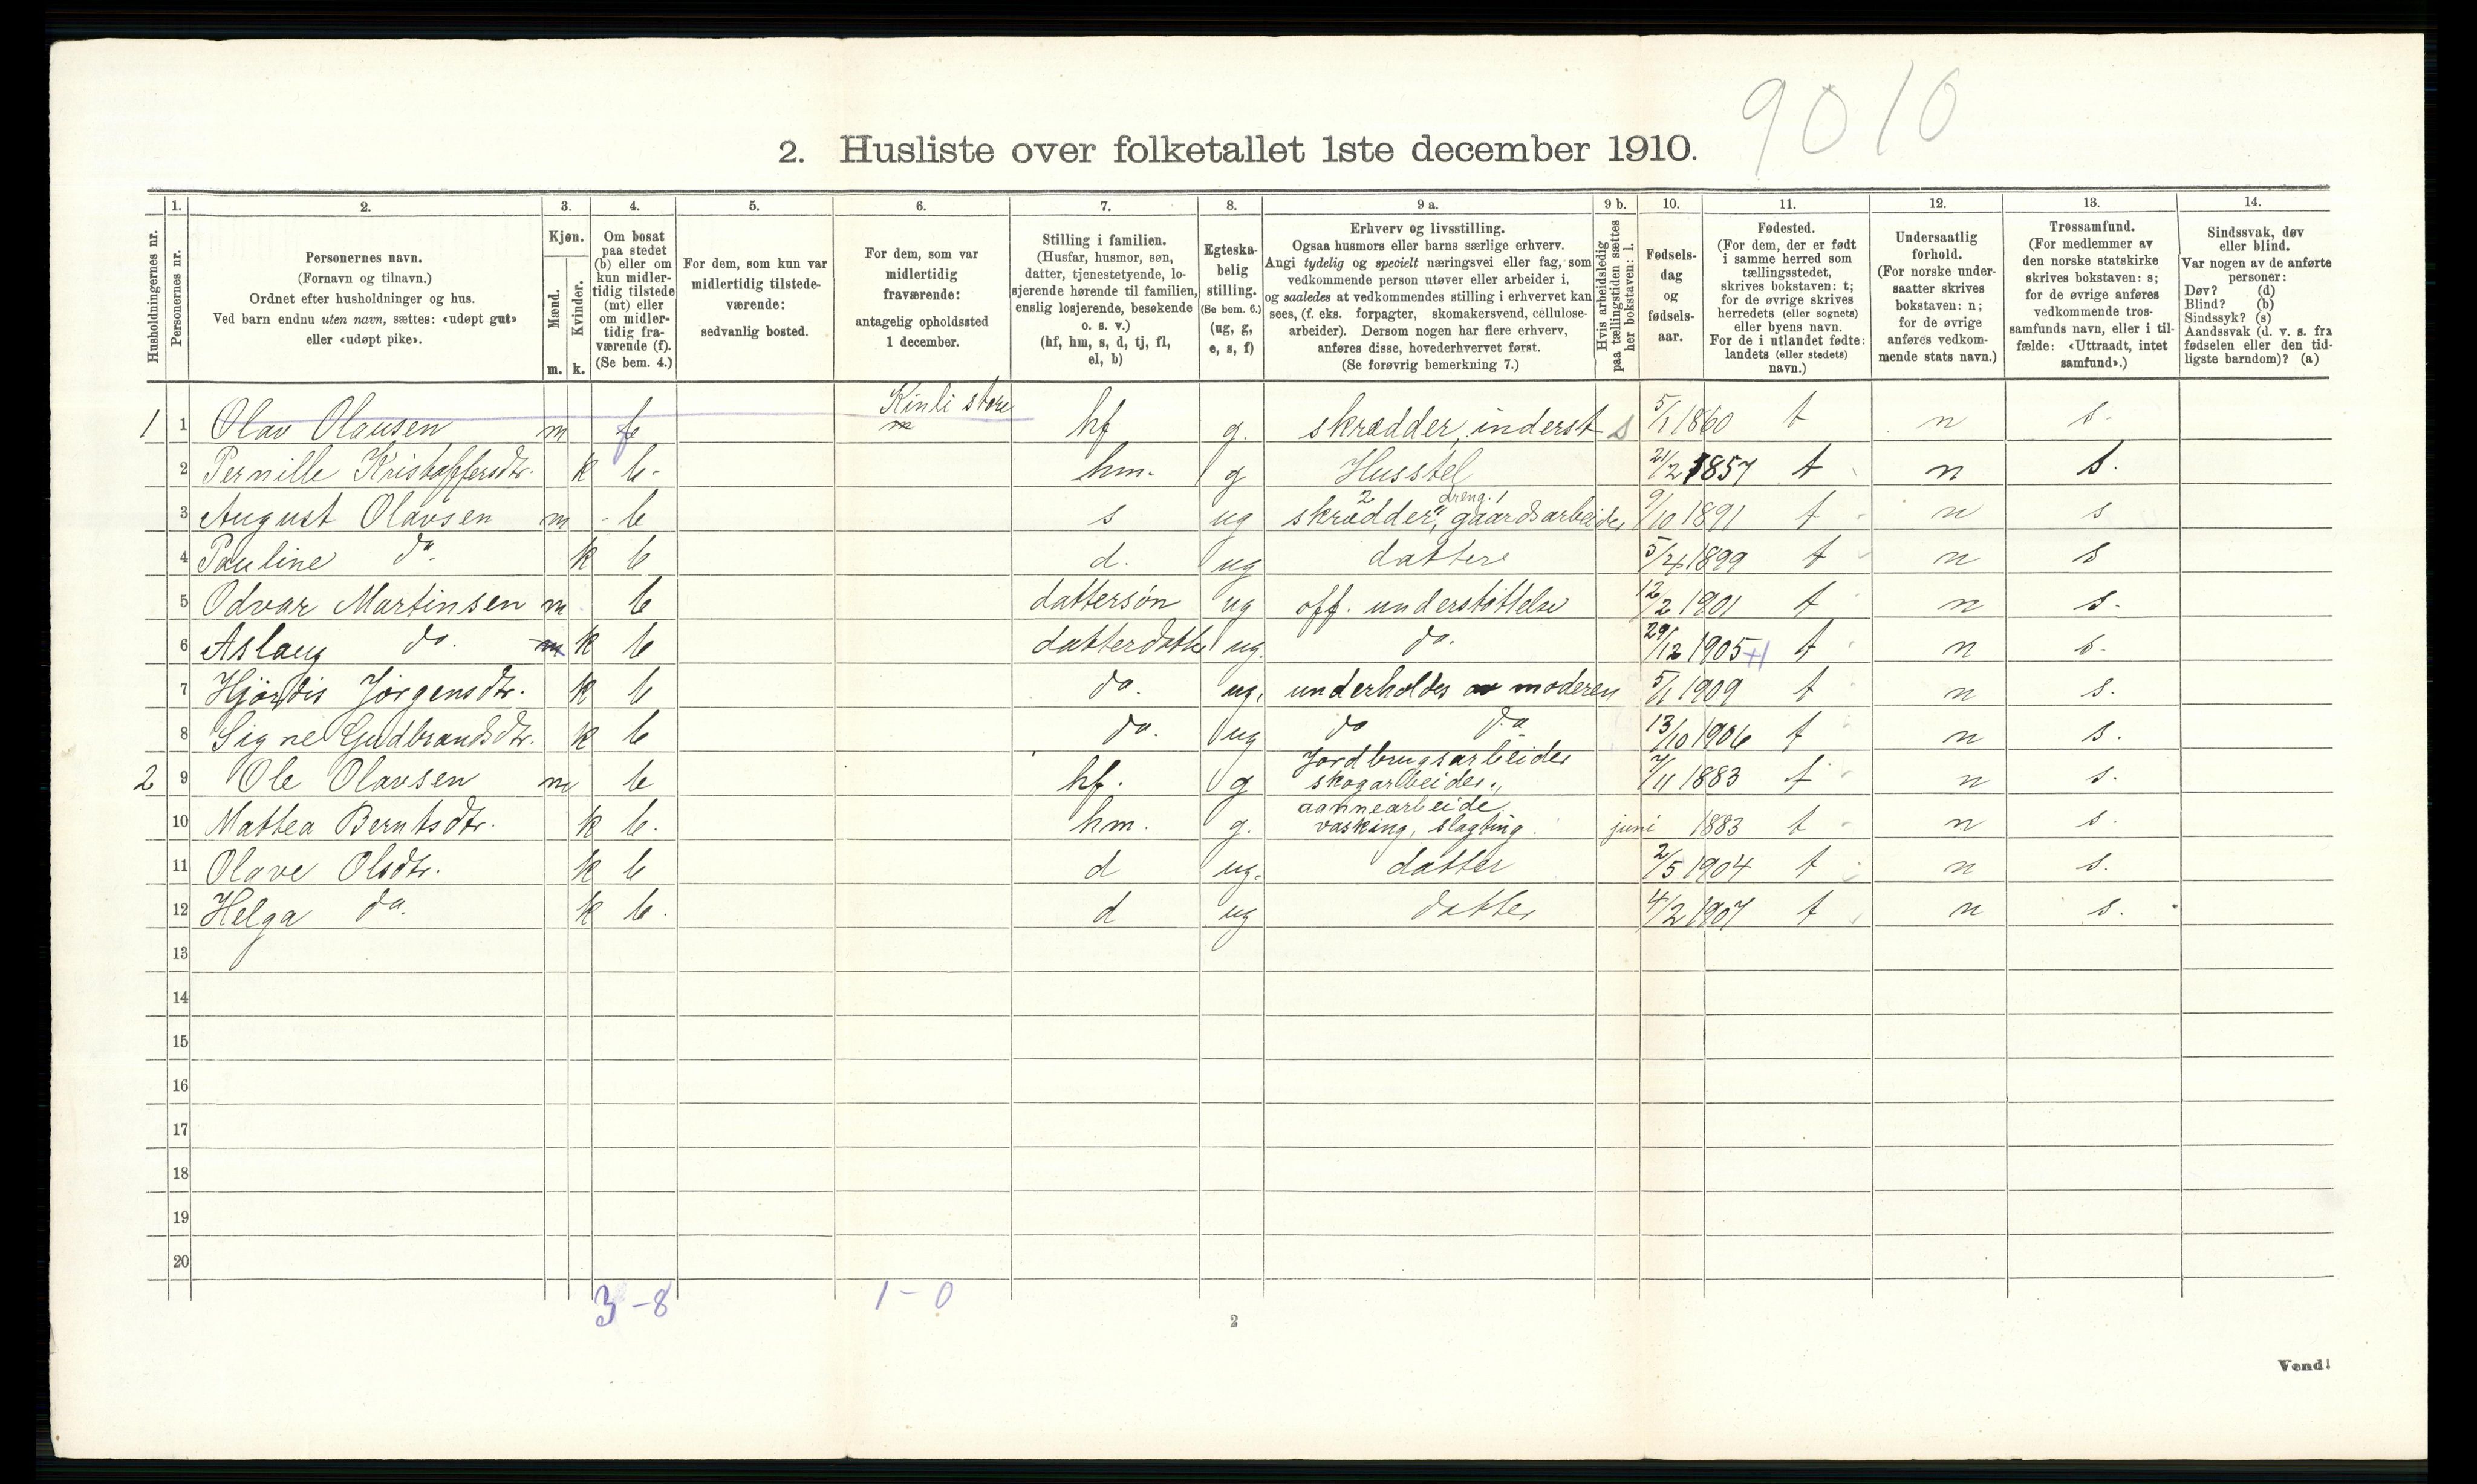 9010
2. Husliste over folketallet 1ste december 1910.
Husholdningernes nr.
1.
Personernes nr.
2.
Personernes navn.
(Fornavn og tilnavn.)
Ordnet efter husholdninger og hus.
Ved barn endnu uten navn, sættes: «udøpt gut»
eller «udøpt pike».
3.
Kjøn.
Mænd.
Kvinder.
m. k.
4.
Om bosat
paa stedet
(b) eller om
kun midler-
tidig tilstede
(mt) eller
om midler-
tidig fra-
værende (f).
(Se bem. 4.)
5.
For dem, som kun var
midlertidig tilstede-
værende:
sedvanlig bosted.
6.
For dem, som var
midlertidig
fraværende:
antagelig opholdssted
1 december.
7.
Stilling i familien.
(Husfar, husmor, søn,
datter, tjenestetyende, lo-
sjerende hørende til familien,
enslig losjerende, besøkende
o. s. v.)
(hf, hm, s, d, tj, fl,
el, b)
8.
Egteska-
belig
stilling.
(Se bem. 6.)
(ug, g,
e, s, f)
9 a.
Erhverv og livsstilling.
Ogsaa husmors eller barns særlige erhverv.
Angi tydelig og specielt næringsvei eller fag, som
vedkommende person utøver eller arbeider i,
og saaledes at vedkommendes stilling i erhvervet kan
sees, (f. eks. forpagter, skomakersvend, cellulose-
arbeider). Dersom nogen har flere erhverv,
anføres disse, hovederhvervet først.
(Se forøvrig bemerkning 7.)
9 b.
Hvis arbeidsledig
paa tællingstiden sættes
her bokstaven: l.
10.
Fødsels-
dag
og
fødsels-
aar.
11.
Fødested.
(For dem, der er født
i samme herred som
tællingsstedet,
skrives bokstaven: t;
for de øvrige skrives
herredets (eller sognets)
eller byens navn.
For de i utlandet fødte:
landets (eller stedets)
navn.)
12.
Undersaatlig
forhold.
(For norske under-
saatter skrives
bokstaven: n;
for de øvrige
anføres vedkom-
mende stats navn.)
13.
Trossamfund.
(For medlemmer av
den norske statskirke
skrives bokstaven: s;
for de øvrige anføres
vedkommende tros-
samfunds navn, eller i til-
fælde: «Uttraadt, intet
samfund».)
14.
Sindssvak, døv
eller blind.
Var nogen av de anførte
personer:
Døv? (d)
Blind? (b)
Sindssyk? (s)
Aandssvak (d. v. s. fra
fødselen eller den tid-
ligste barndom)? (a)
1 1 Olav Olausen m f Kinli store hf g. skrædder, inderst s 5/1 1860 t n s.
2 Pernille Kristoffersdtr. k b. hm. g Husstel 21/2 1857 t n s.
3 August Olavsen m b s ug skrædder, 2 dreng. 1 gaardsarbeider 9/10 1891 t n s
4 Pauline do. k b d. ug datter 5/4 1899 t n s
5 Odvar Martinsen m b dattersøn ug off. understøttelse 12/2 1901 t n s.
6 Aslaug do. m k b datterdatter ug. do. 29/12 1905 t n s.
7 Hjørdis Jørgensdtr. k b do. ug. underholdes av moderen 5/1 1909 t n s.
8 Signe Gudbrandsdtr. k b do. ug do do 13/10 1906 t n s.
2 9 Ole Olavsen m b hf. g Jordbrugsarbeider skogarbeider 7/11 1883 t n s.
10 Mattea Berntsdtr. k b. hm. g. aannearbeide. vasking, slagting. juni 1883 t n s.
11 Olave Olsdtr. k b d ug. datter 2/5 1904 t n s.
12 Helga do. k b. d ug datter 4/2 1907 t n s.
13
14
15
16
17
18
19
20
3-8 1-0
2
Vend!